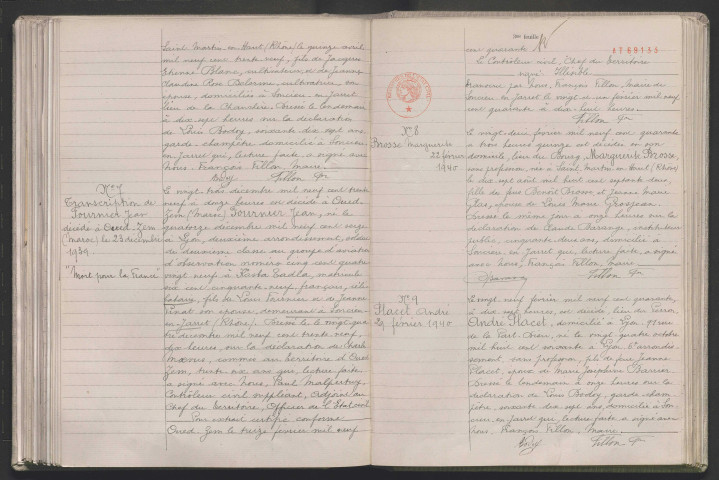 Saint Martin en Haut (Rhône) le quinze avril
mil neuf cent trente neuf, fils de Jacques
Etienne Blanc, cultivateur, et de Jeanne
Claudine Rose cultivatrice, son
épouse, domiciliés à Soucieu en Jarrest
lieu de la Chaudière. Dressé le lendemain
à dix sept heures sur la déclaration
de Louis Bodoy, soixante dix sept ans
garde champêtre domicilié à Soucieu
en Jarrest qui, lecture faite a signé avec
Nous, François Fillon, Maire.
Bodoy Fillon Fr
N° 7
Transcription de
Fournier Jean
décédé à Oued-Zem
(Maroc) le 23 décembre
1939
"Mort pour la France"
Le vingt trois décembre mil neuf cent trente
neuf à douze heures est décédé à Oued-
Zem (Maroc) Fournier Jean, né le
quatorze décembre mil neuf cent seize
à Lyon, deuxième arrondissement, soldat
de deuxième classe au groupe d'aviation
d'observation numéro cinq cent quatre
vingt neuf à Kasba Tadla, matricule
six cent cinquante neuf, français, céli-
bataire, fils de Louis Fournier et de Jeanne
Pinat son épouse, demeurant à Soucieu-
en-Jarrest (Rhône). Dressé le vingt qua-
tre décembre mil neuf cent trente neuf,
dix heures, sur la déclaration de
commis au territoire d'Oued
Zem, trente six ans que, lecture faite
a signé avec Nous, Paul
Contrôleur civil suppléant, adjoint au
Chef du Territoire, Officier de l'Etat civil
Pour extrait certifié conforme
Oued-Zem le treize février mil neuf
feuille
69135
cent quarante
Le Contrôleur civil, Chef du Territoire
signé:
Transcrit par Nous, François Fillon, Maire de
Soucieu en Jarrest le vingt et un février mil neuf
cent quarante à dix huit heures.
Fillon Fr
N° 8
Brosse Marguerite
22 février
1940
Le vingt deux février mil neuf cent quarante
à trois heures quinze est décédée en son
domicile, lieu du Bourg, Marguerite Brosse,
sans profession, née à Saint Martin en Haut (Rhône)
le dix sept août mil huit cent soixante deux,
fille de feu Benoît Brosse, et Jeanne Marie
épouse de Louis Marie Grosjean.
Dressé le même jour à onze heures sur la
déclaration de Claude Barange, instituteur
public, cinquante deux ans, domicilié à
Soucieu en Jarrest qui, lecture faite, a signé
avec Nous, François Fillon, Maire.
Barange Fillon Fr
N° 9
Placet André
29 février 1940
Le vingt neuf février mil neuf cent quarante,
à dix sept heures, est décédé, lieu du Perron,
André Placet, domicilié à Lyon, 11 rue
de la Part-Dieu, né le vingt quatre octobre
mil huit cent soixante à Lyon 6e arrondis-
sement, sans profession, fils de feue Jeanne
Placet, époux de Marie Joséphine Barrier.
Dressé le lendemain à onze heures sur la
déclaration de Louis Bodoy, garde cham-
pêtre, soixante dix sept ans, domicilié à Sou-
cieu en Jarrest qui, lecture faite, a signé avec
Nous, François Fillon, Maire.
Bodoy Fillon Fr